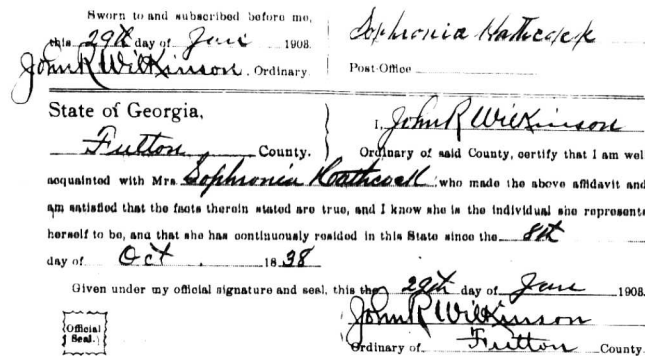 Sworn to and subscribed before me,
this 29th day of Jan 1908.
John R Wilkinson, Ordinary.
Sophronia Hathcock
Post-Office
State of Georgia,
Fulton County.
I, John R Wilkinson
Ordinary of said County, certify that I am well
acquainted with Mrs. Sophronia Hathcock who made the above affidavit and
am satisfied that the facts therein stated are true, and I know she is the individual she represents
herself to be, and that she has continuously resided in this State since the 8th
day of Oct. 1838
Given under my official signature and seal, this the 29th day of Jan 1908.
John R Wilkinson
Ordinary of Fulton County.
Official
Seal.